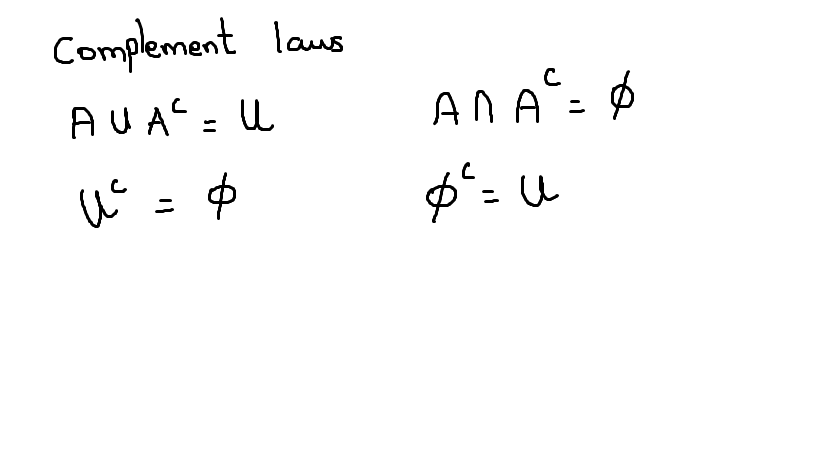 Complement laws
A ∪ Aᶜ = U A ∩ Aᶜ = ϕ
Uᶜ = ϕ ϕᶜ = U